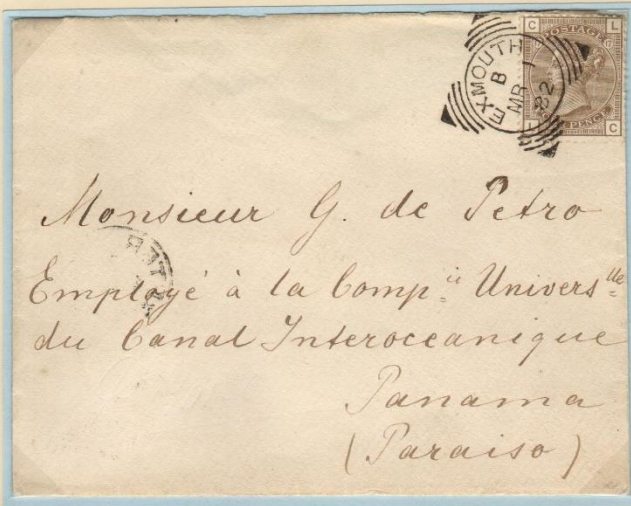 C L
POSTAGE
17
EXMOUTH
B 1
MR
82
PENCE
L C
Monsieur G. de Petro
Employé à la Comp.ie Univers.lle
du Canal Interoceanique
Panama
(Paraiso)